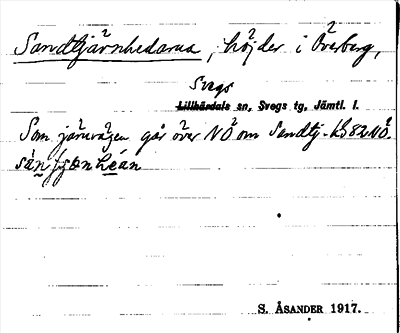 Sandtjärnhedarna, höjder i Överberg,
Svegs
Lillhärdals sn, Svegs tg, Jämtl. l.
Som järnvägen går över NO om Sandtj. 82 NO.
S. ÅSANDER 1917.